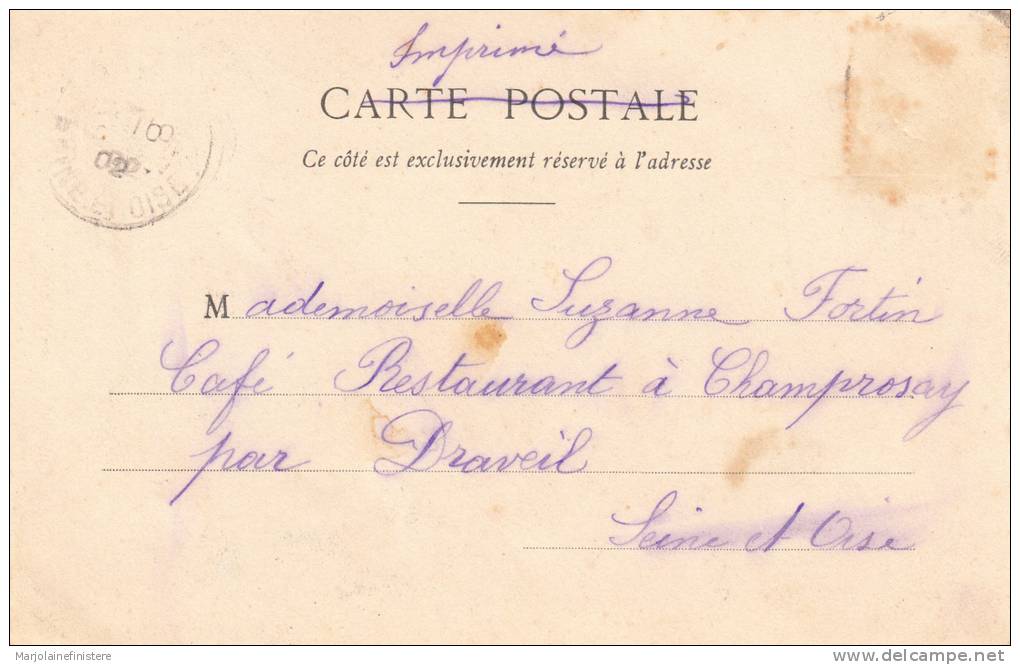 Imprimé
CARTE POSTALE
Ce côté est exclusivement réservé à l'adresse
02
OISE
Mademoiselle Suzanne Fortin
Café Restaurant à Champrosay
par Draveil
Seine et Oise
Marjolainefinistere
www.delcampe.net